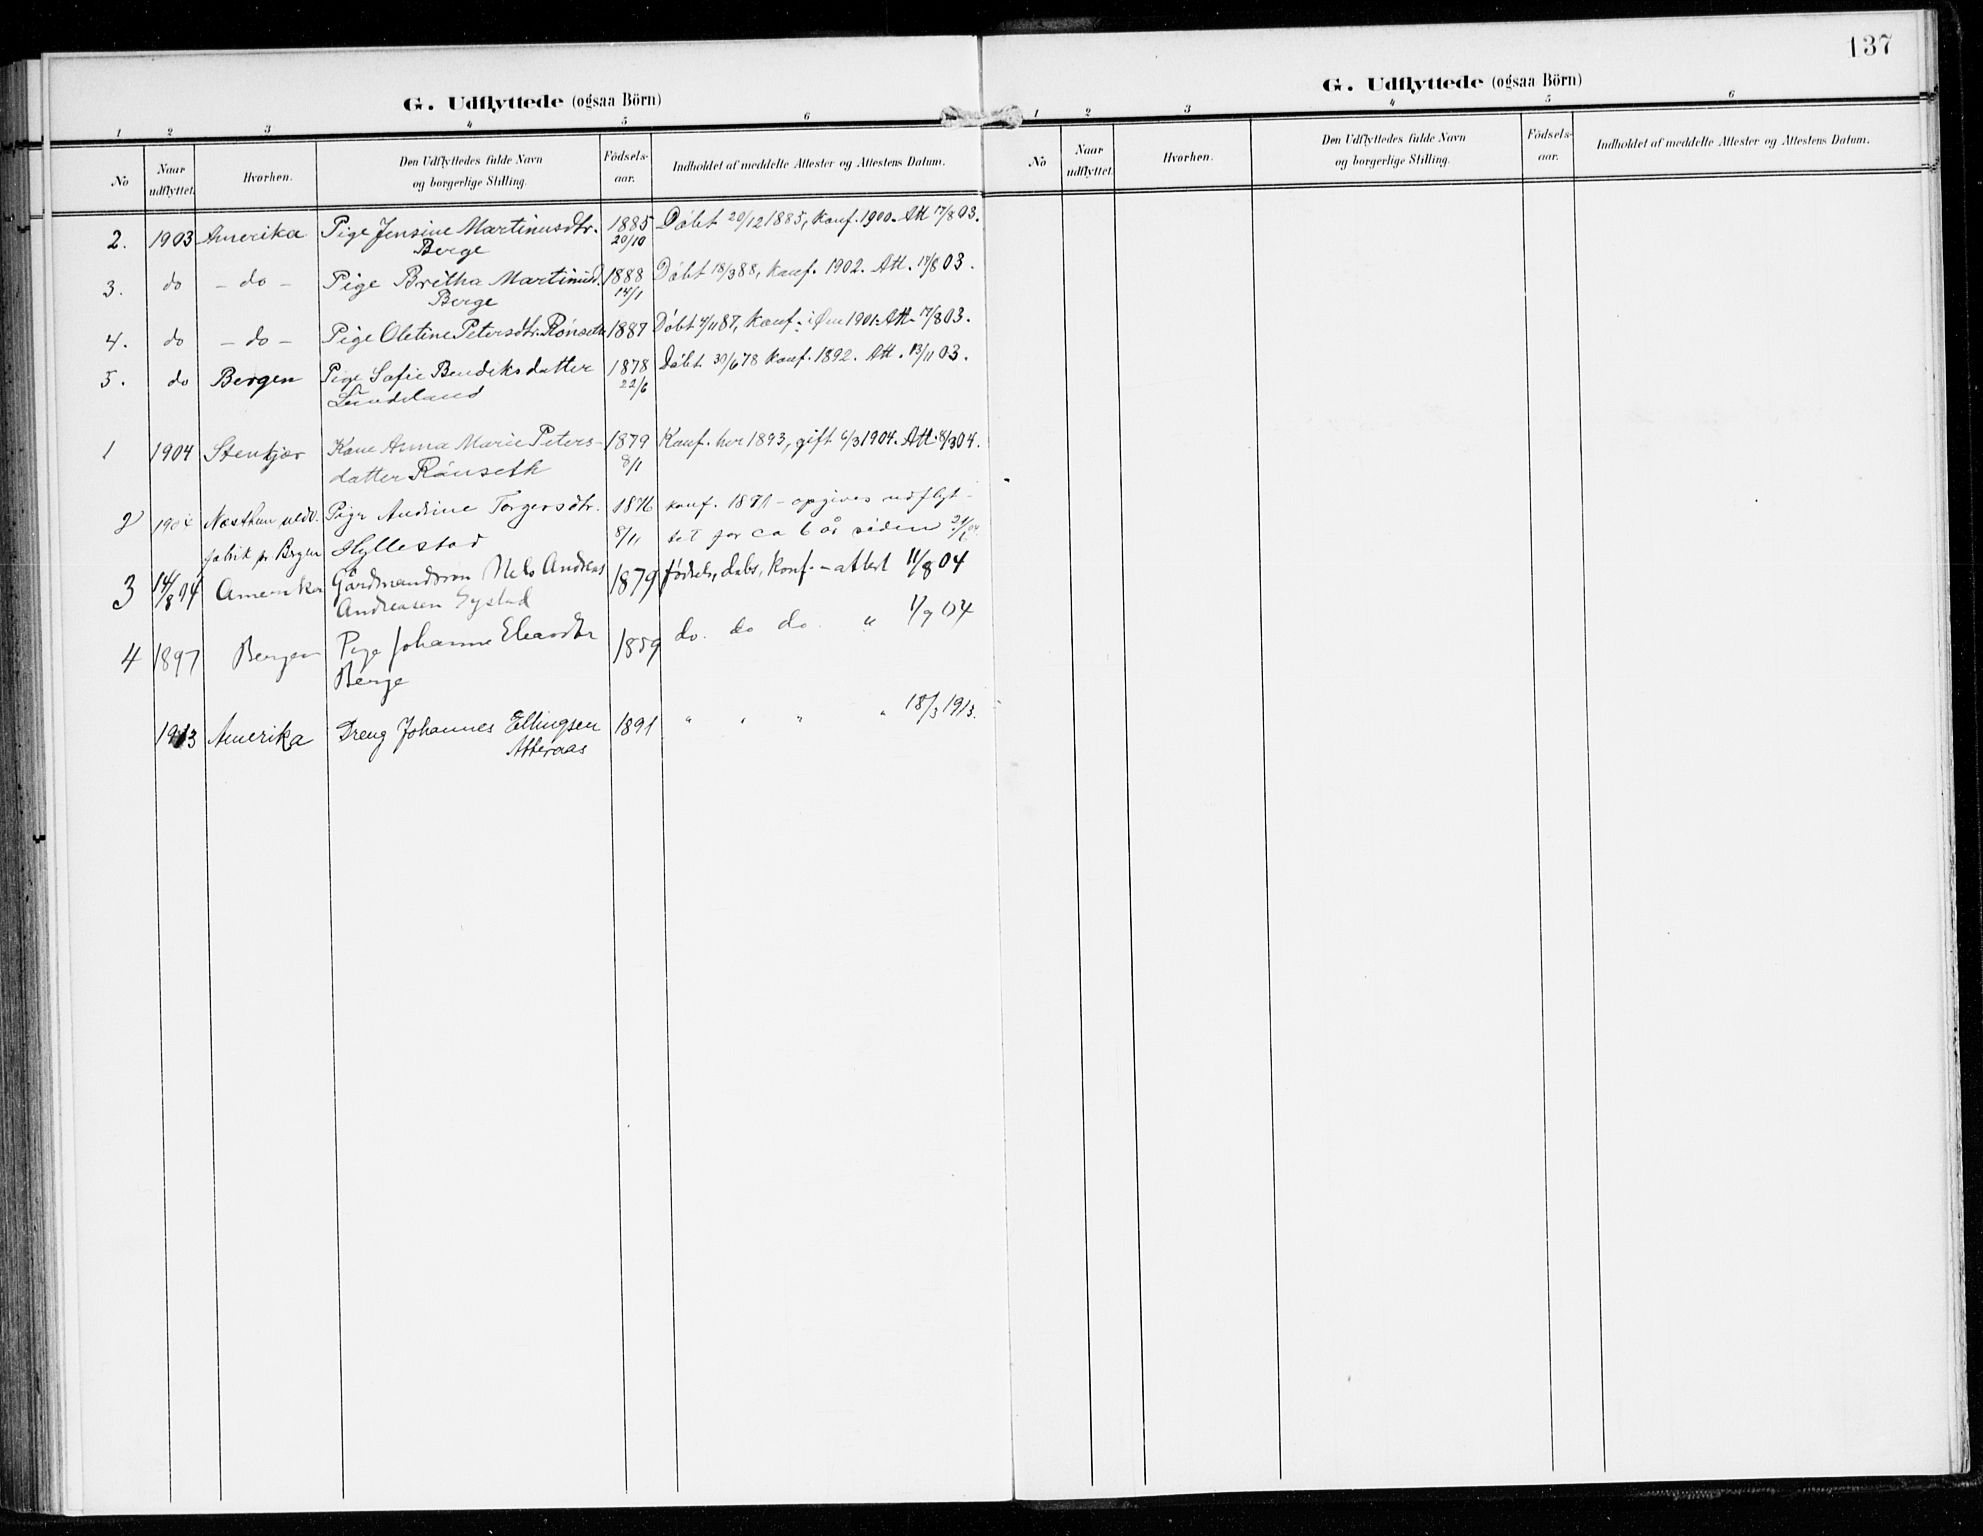 137
G. Udflyttede (ogsaa Börn)
1 2 3 4 5 6
No Naar udflyttet. Hvorhen. Den Udflyttedes fulde Navn og borgerlige Stilling. Födsels-aar. Indholdet af meddelte Attester og Attestens Datum.
2. 1903 Amerika Pige Jensine Martinusdtr. 1885 Döbt 20/12 1885, konf. 1900. Att 17/8 03.
Berge 20/10
3. do - do - Pige Britha Martinusd. 1888 Döbt 18/3 88, konf. 1902. Att. 17/8 03.
Berge 14/1
4. do - do - Pige Oletine Petersdtr. Rönseth 1887 Döbt 4/11 87, konf. i 1901. Att. 17/8 03.
5. do Bergen Pige Sofie Bendiksdatter 1878 Döbt 30/6 78 konf. 1892. Att. 13/11 03.
22/6
1 1904 Stenkjær Kone Anna Marie Peters- 1879 Konf. her 1893, gift 6/3 1904. Att. 8/3 04.
datter Rönseth 8/1
2 Pige Andrine Torgersdtr. 1876 konf. - opgives udflyt-
fabrik pr Bergen Hyllestad 8/11 tet for ca 6 år siden
3 14/8 04 Amerika Gårdmandssön Nels Andreas 1879 födsels, dabs, konf. - attest 11/8 04
Andreasen Systad
4 1897 Bergen Pige Johanne 1859 do. do do. " 1/9 04
Berge
1913 Amerika Dreng Johannes Ellingsen 1891 " " " " 18/3 1913.
Atteraas
G. Udflyttede (ogsaa Börn)
1 2 3 4 5 6
No Naar udflyttet. Hvorhen. Den Udflyttedes fulde Navn og borgerlige Stilling. Födsels-aar. Indholdet af meddelte Attester og Attestens Datum.